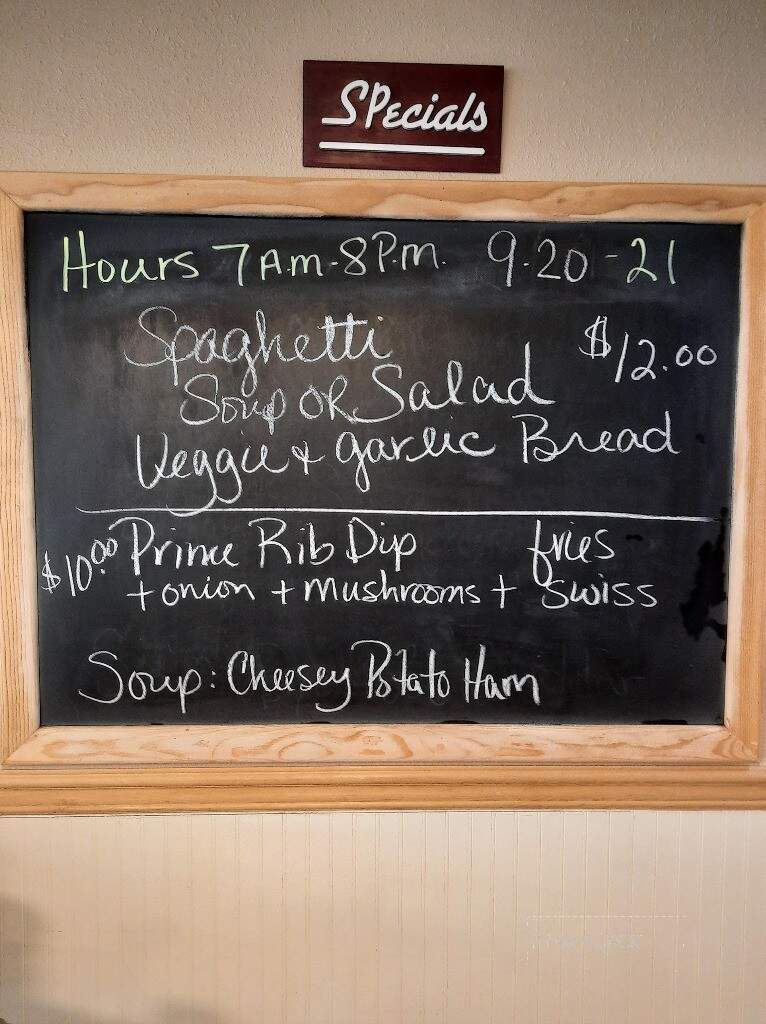 SPecials
Hours 7 A.m.-8 P.m. 9-20-21
Spaghetti $12.00
Soup OR Salad
Veggie + garlic Bread
$10.00 Prime Rib Dip fries
+ onion + mushrooms + Swiss
Soup: Cheesey Potato Ham